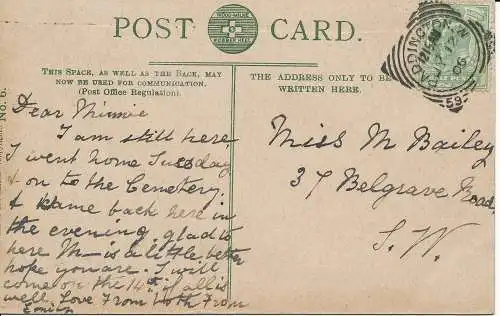 POST CARD.
THIS SPACE, AS WELL AS THE BACK, MAY
NOW BE USED FOR COMMUNICATION.
(Post Office Regulation).
THE ADDRESS ONLY TO BE
WRITTEN HERE.
No. 6.
PADDINGTON
59
Dear Minnie
I am still here
I went home Tuesday
& on to the Cemetery.
& Kame back here in
the evening, glad to
here M— is a little better
hope you are. I will
come on the 14th if all is
well. Love From both From
Emily
Miss M Bailey
37 Belgrave Road
S. W.